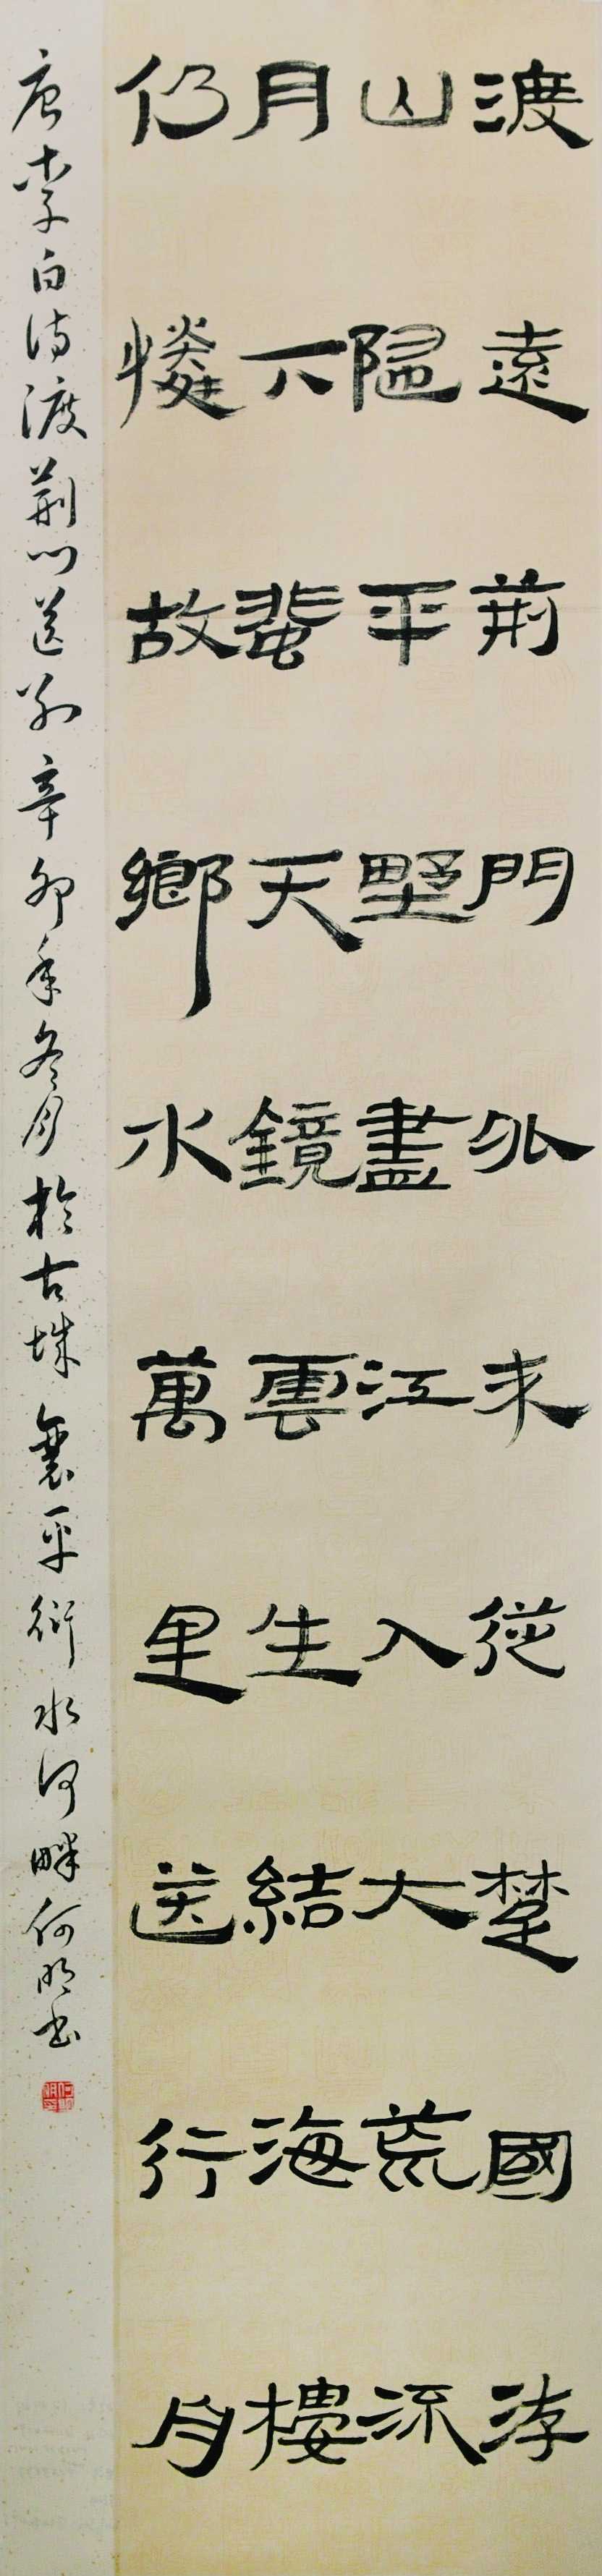 渡遠荊門外来從楚國游
山隨平野盡江入大荒流
月下蜚天鏡雲生結海樓
仍憐故鄉水萬里送行舟
唐李白詩渡荊門送别辛卯年冬月於古城襄平衍水河畔何明書